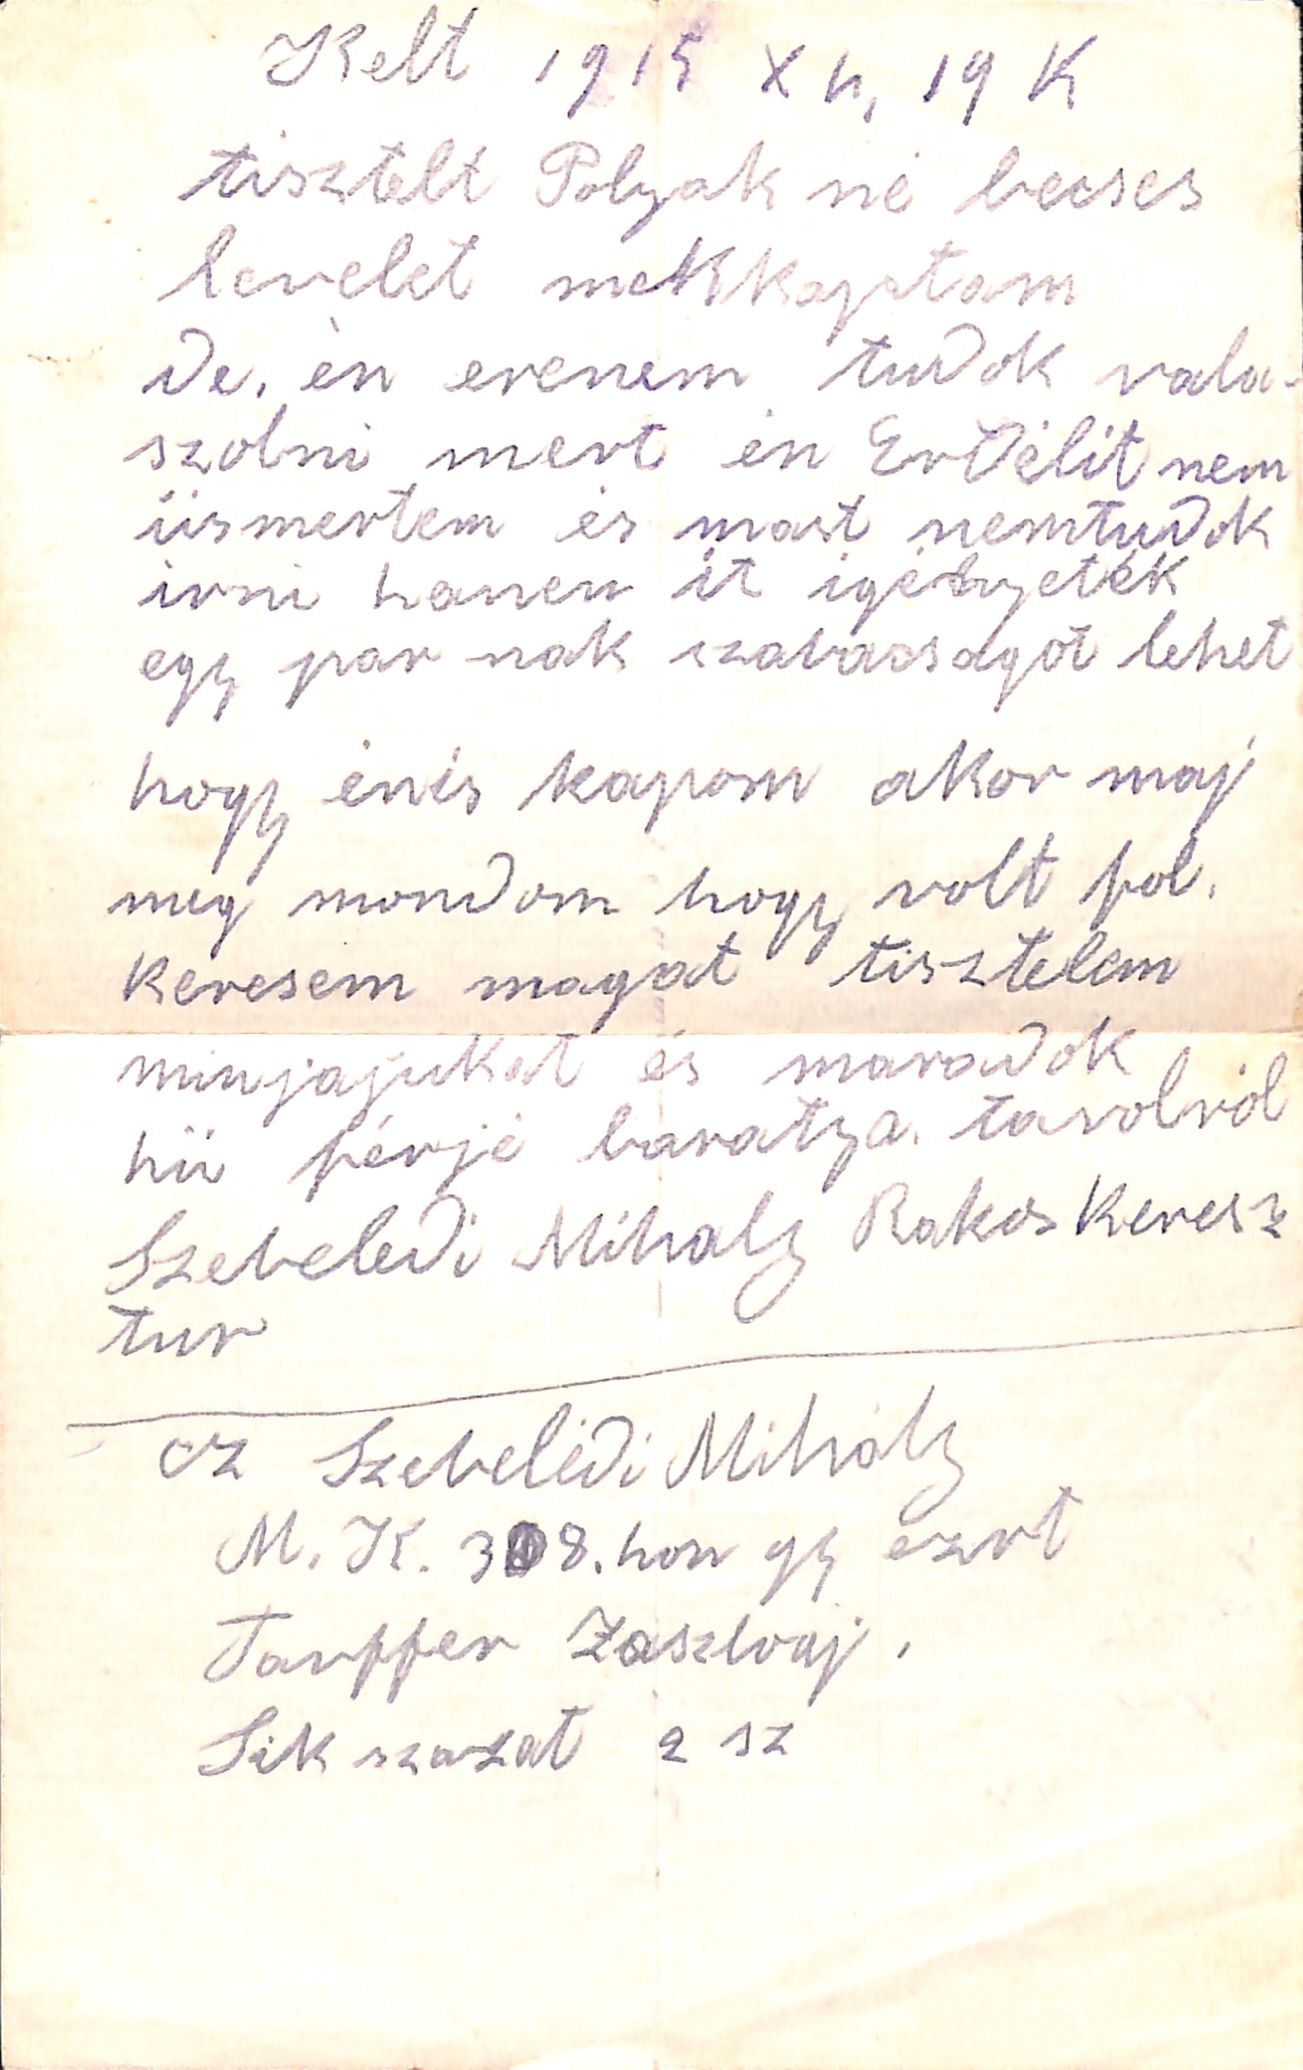 Kelt 1915 XII, 19 K
tisztelt Polyak né becses
levelet mekkaptam
de. én erenem tudok vala-
szolni mert én Erdélit nem
iismertem és mast nemtudok
irni hanen it igébyeték
egy par nak szabacsagot lehet
hogy énis kapom akor maj
meg mondom hogy volt föl.
keresem magat tisztelem
minjajukat és maradok
hü férjé baratya. tavolról
Szebeledi Mihaly Rakos keresz
tur
cz Szebelédi Mihály
M. K. 308. hon gy ezrt
Tauffer Zaszloaj.
Sik szazat 2 sz